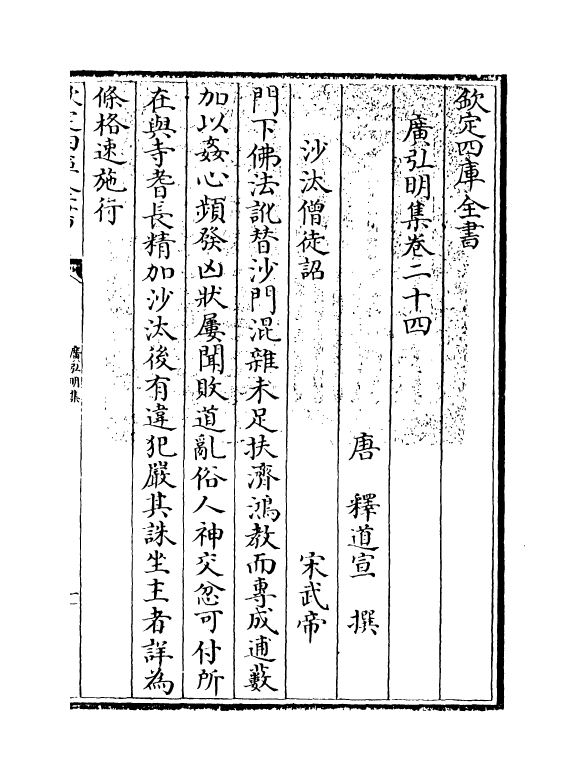 欽定四庫全書
廣弘明集卷二十四
唐 釋道宣 撰
沙汰僧徒詔 宋武帝
門下佛法訛替沙門混雜未足扶濟鴻教而專成逋藪
加以姦心頻發凶狀屢聞敗道亂俗人神交忿可付所
在與寺耆長精加沙汰後有違犯嚴其誅坐主者詳為
條格速施行
欽定四庫全書
廣弘明集
一